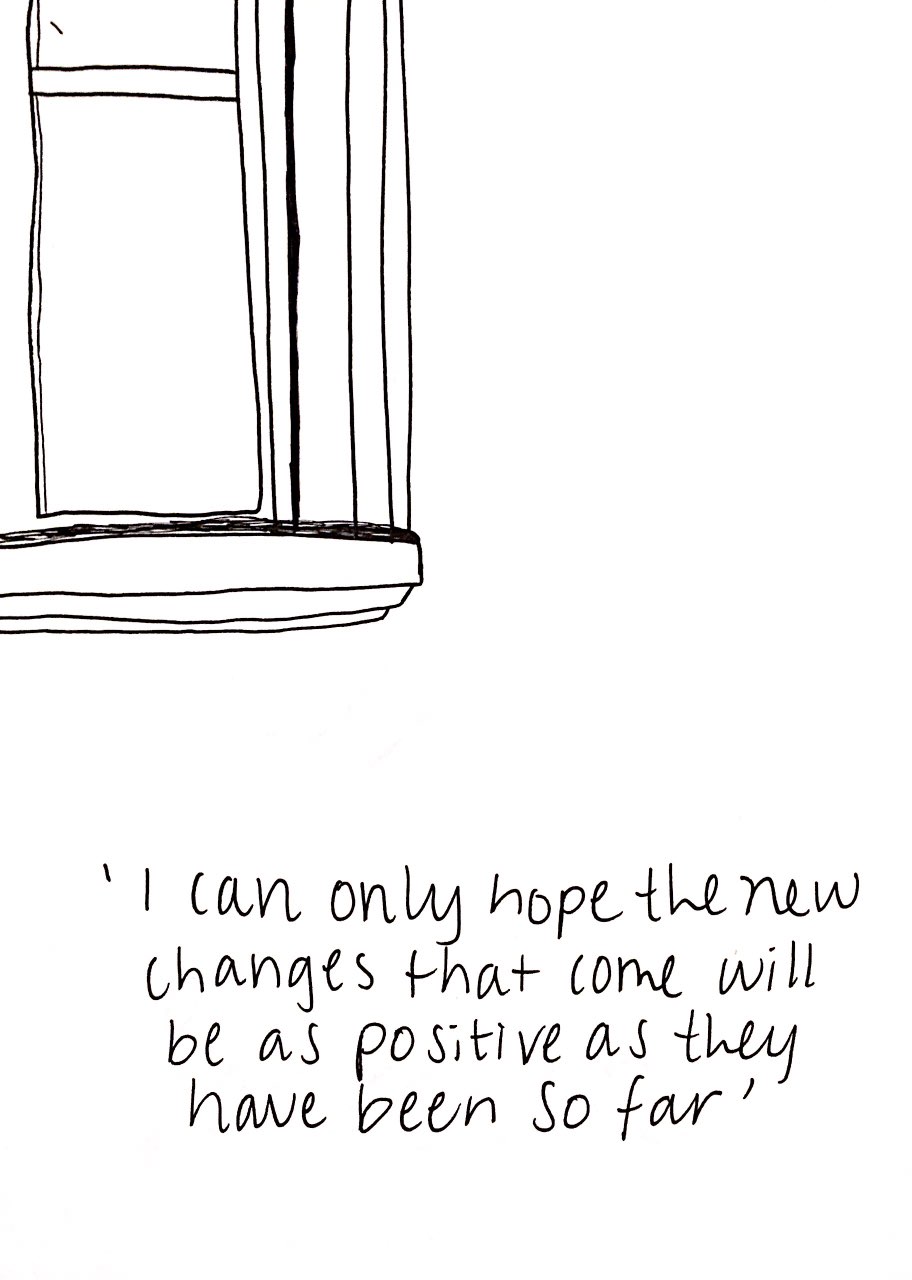 'I can only hope the new
changes that come will
be as positive as they
have been so far'